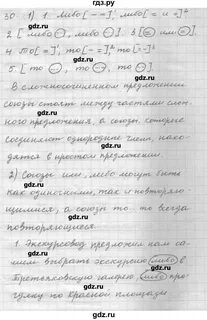 30 1) 1 либо [- =]¹, либо [= и =]²
2 [либо О, либо О] 3 [О или О].
4 То [- =]¹, то [- =]² то [=-]³
5 [то О, то О, то О]
В сложносочиненном предложении
союзы стоят между частями слож-
ного предложения, а союзы, которые
соединяют однородные члены, нахо-
дятся в простом предложении.
2) Союзы или, либо могут быть
как одиночными, так и повторяю-
щимися, а союзы то - то всегда
повторяющиеся
1 Экскурсовод предложил нам са-
мим выбрать экскурсию (либо) в
Третьяковскую галерею (либо) про-
гулку по Красной площади